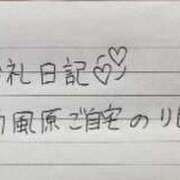 礼日記
風原ご自宅のり